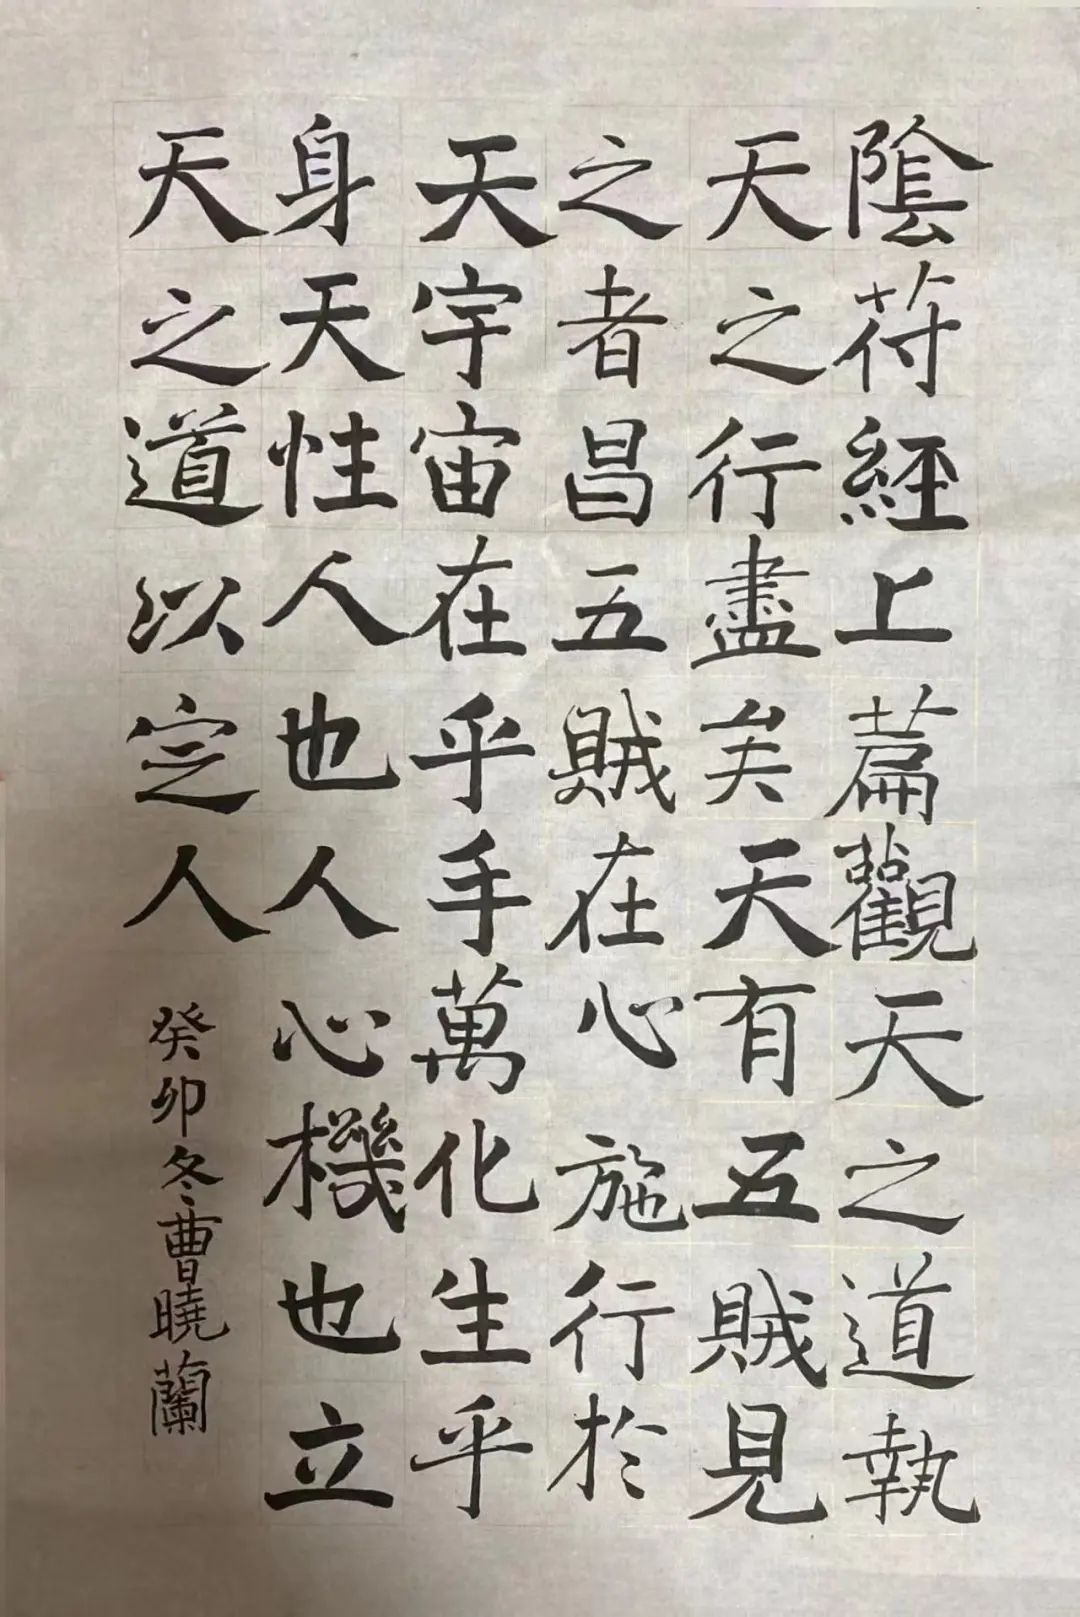 陰符經上篇觀天之道執
天之行盡矣天有五賊見
之者昌五賊在心施行於
天宇宙在乎手萬化生乎
身天性人也人心機也立
天之道以定人
癸卯冬曹曉蘭